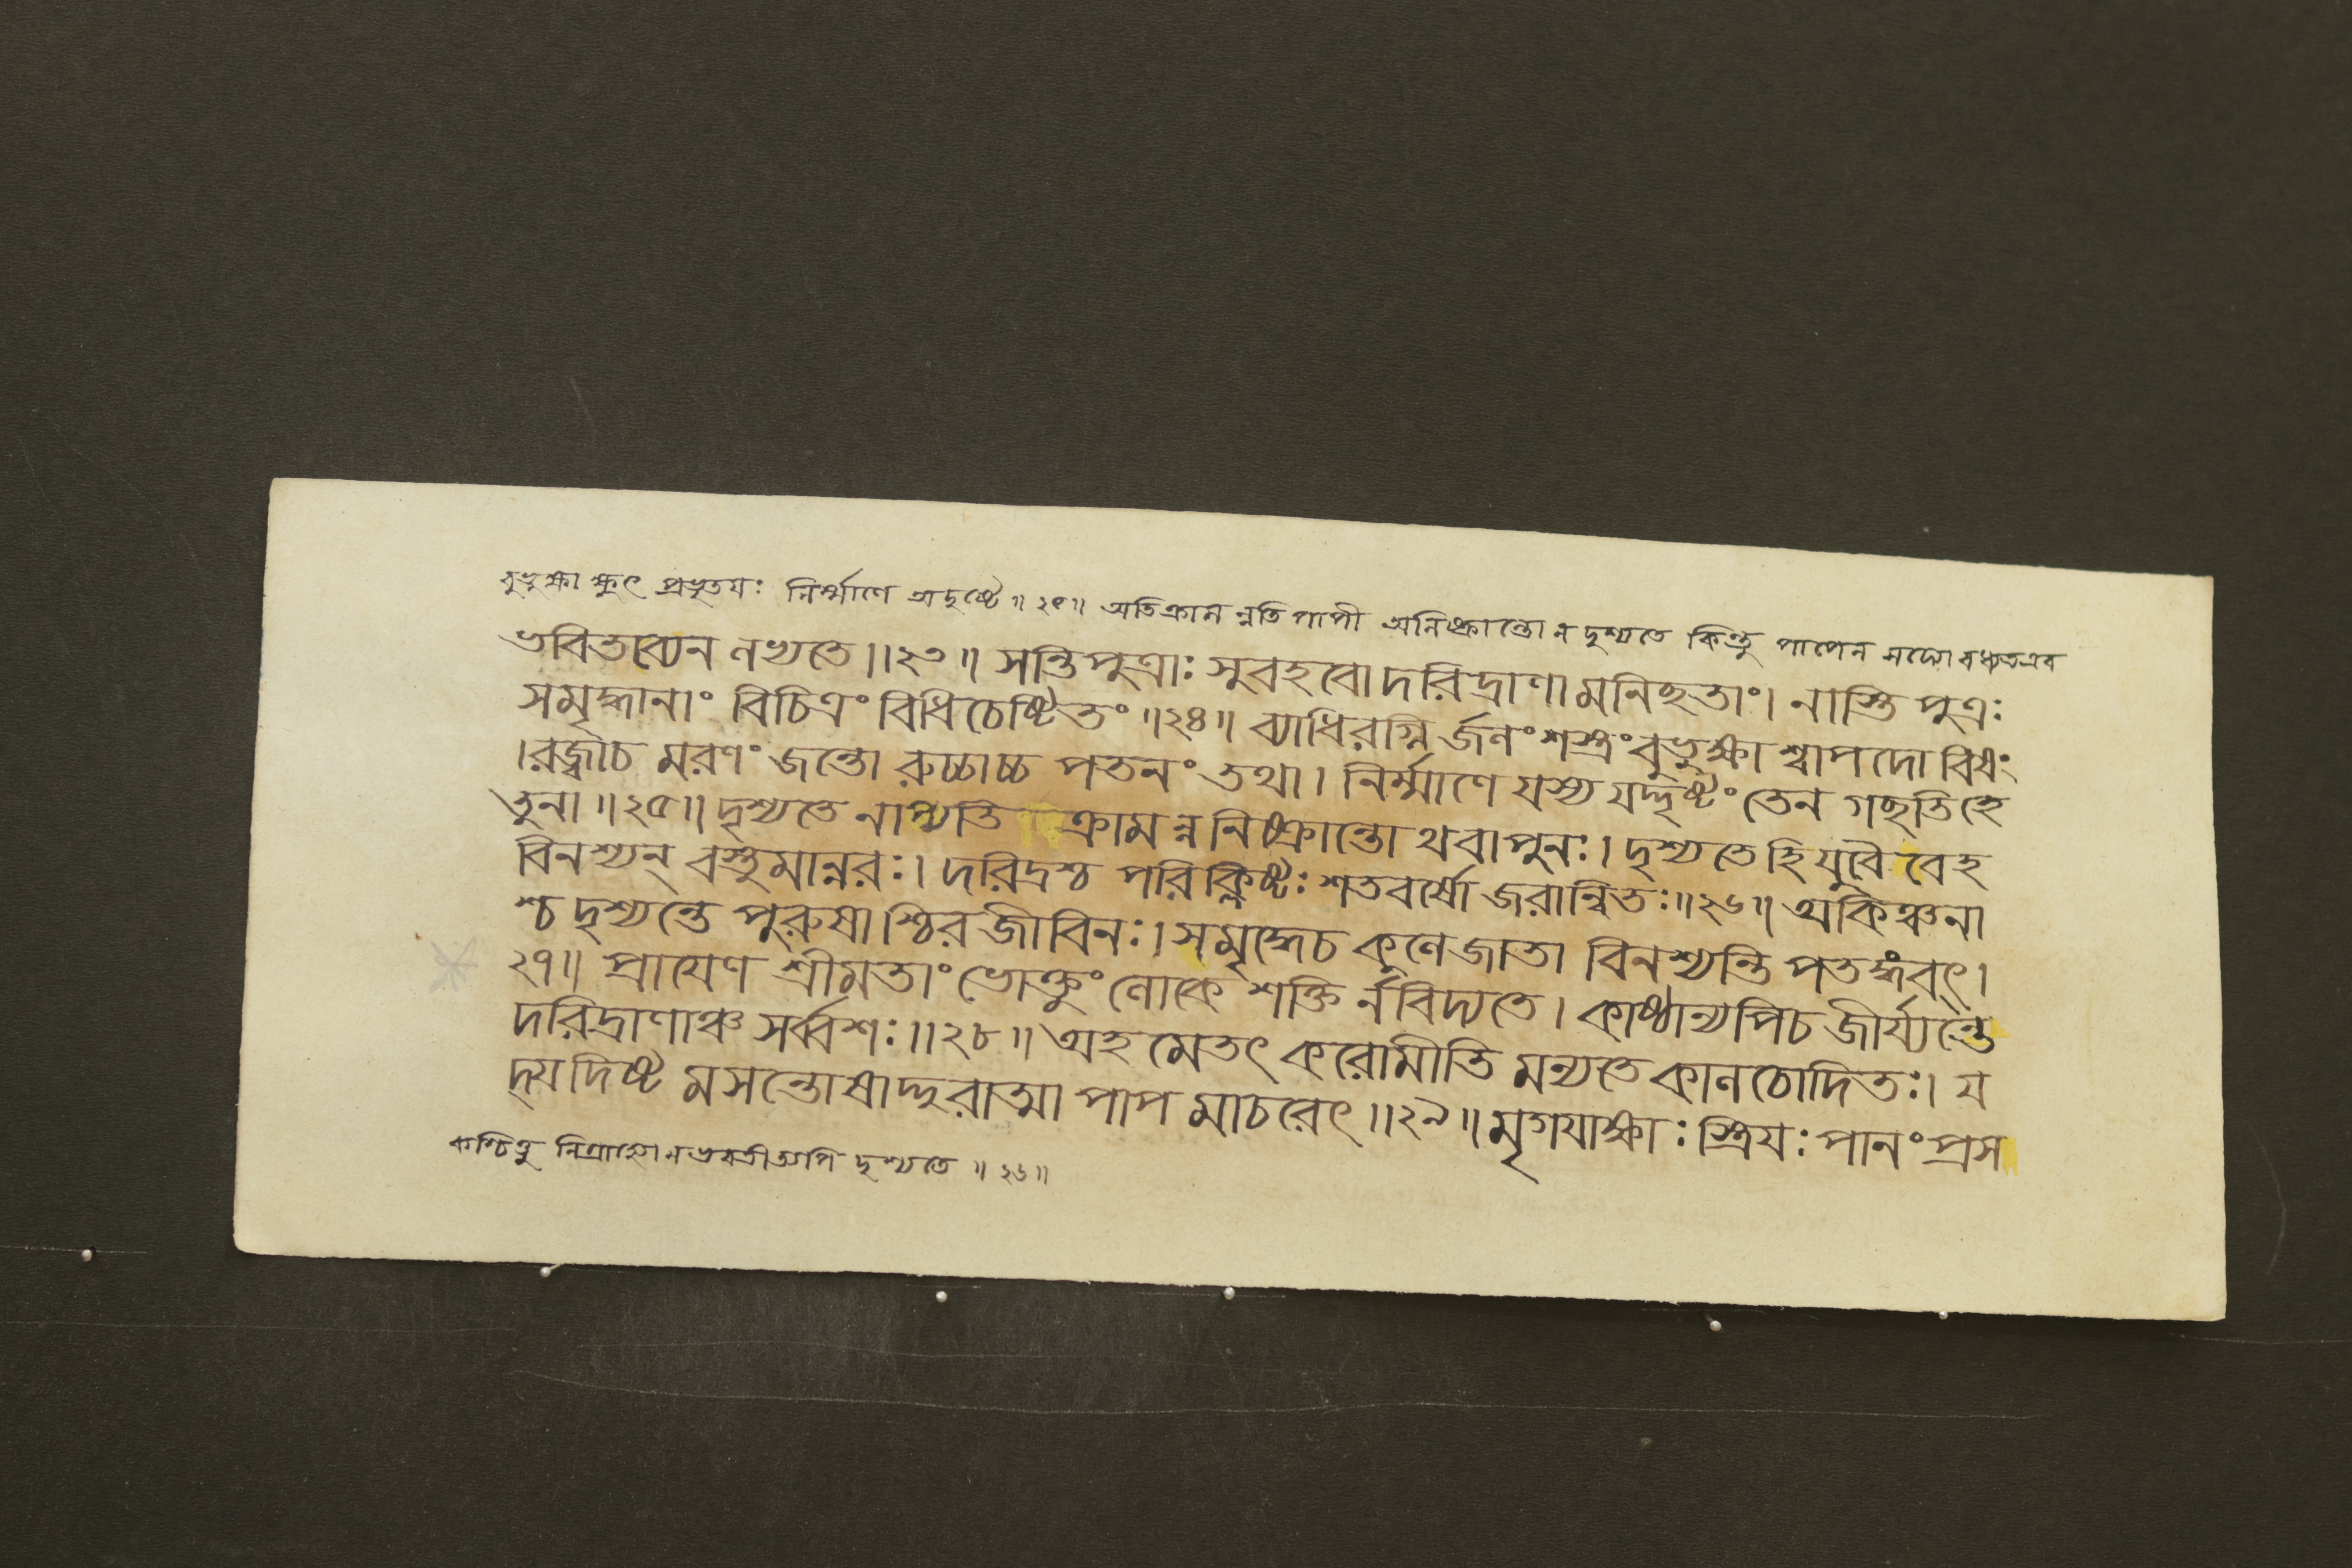 বুভুক্ষা ক্ষুৎ প্রভৃতয়ঃ নির্ম্মাণে অদৃষ্টে ॥ ২৫॥ অতিক্রামন্নতি পাপী অনিষ্ক্রান্তো ন দৃশ্যতে কিন্তু পাপেন
ভবিতব্যেন লভ্যতে ॥২৩॥ সন্তি পুত্রাঃ সুবহবো দরিদ্রাণামনিছতাং। নাস্তি পুত্রঃ
সমৃদ্ধানাং বিচিত্রং বিধিচেষ্টিতং ॥২৪॥ ব্যাধিরগ্নি র্জলং শস্ত্রং বুভুক্ষা শ্বাপদো বিষং
।রজ্জ্বাচ মরণং জন্তো রুচ্চাচ্চ পতনং তথা। নির্ম্মাণে যস্য যদ্দৃষ্টং তেন গছতি হে
তুনা ॥২৫॥ দৃশ্যতে নাপ্যতি ক্রামন্ন নিষ্ক্রান্তো থবাপুনঃ। দৃশ্যতে হি যুবৈ বেহ
বিনশ্যন্ বস্তুমান্নরঃ। দরিদ্রশ্চ পরিক্লিষ্টঃ শতবর্ষো জরান্বিতঃ॥২৬॥ অকিঞ্চনা
শ্চ দৃশ্যন্তে পুরুষা শ্চিরজীবিনঃ। সমৃদ্ধেচ কুলে জাতা বিনশ্যন্তি পতঙ্গবৎ।
২৭॥ প্রায়েণ শ্রীমতাং ভোক্তুং লোকে শক্তি র্নবিদ্যতে। কাষ্ঠান্যপিচ জীর্য্যন্তে
দরিদ্রাণাঞ্চ সর্ব্বশঃ ॥২৮॥ অহমেতৎ করোমীতি মন্যতে কালচোদিতঃ। য
দ্যদিষ্ট মসন্তোষাদ্দুরাত্মা পাপ মাচরেৎ ॥২৯॥ মৃগয়াক্ষাঃ স্ত্রিয়ঃ পানং প্রস
কশ্চিত্তু ন ভবতীত্যপি দৃশ্যতে ॥ ২৬॥